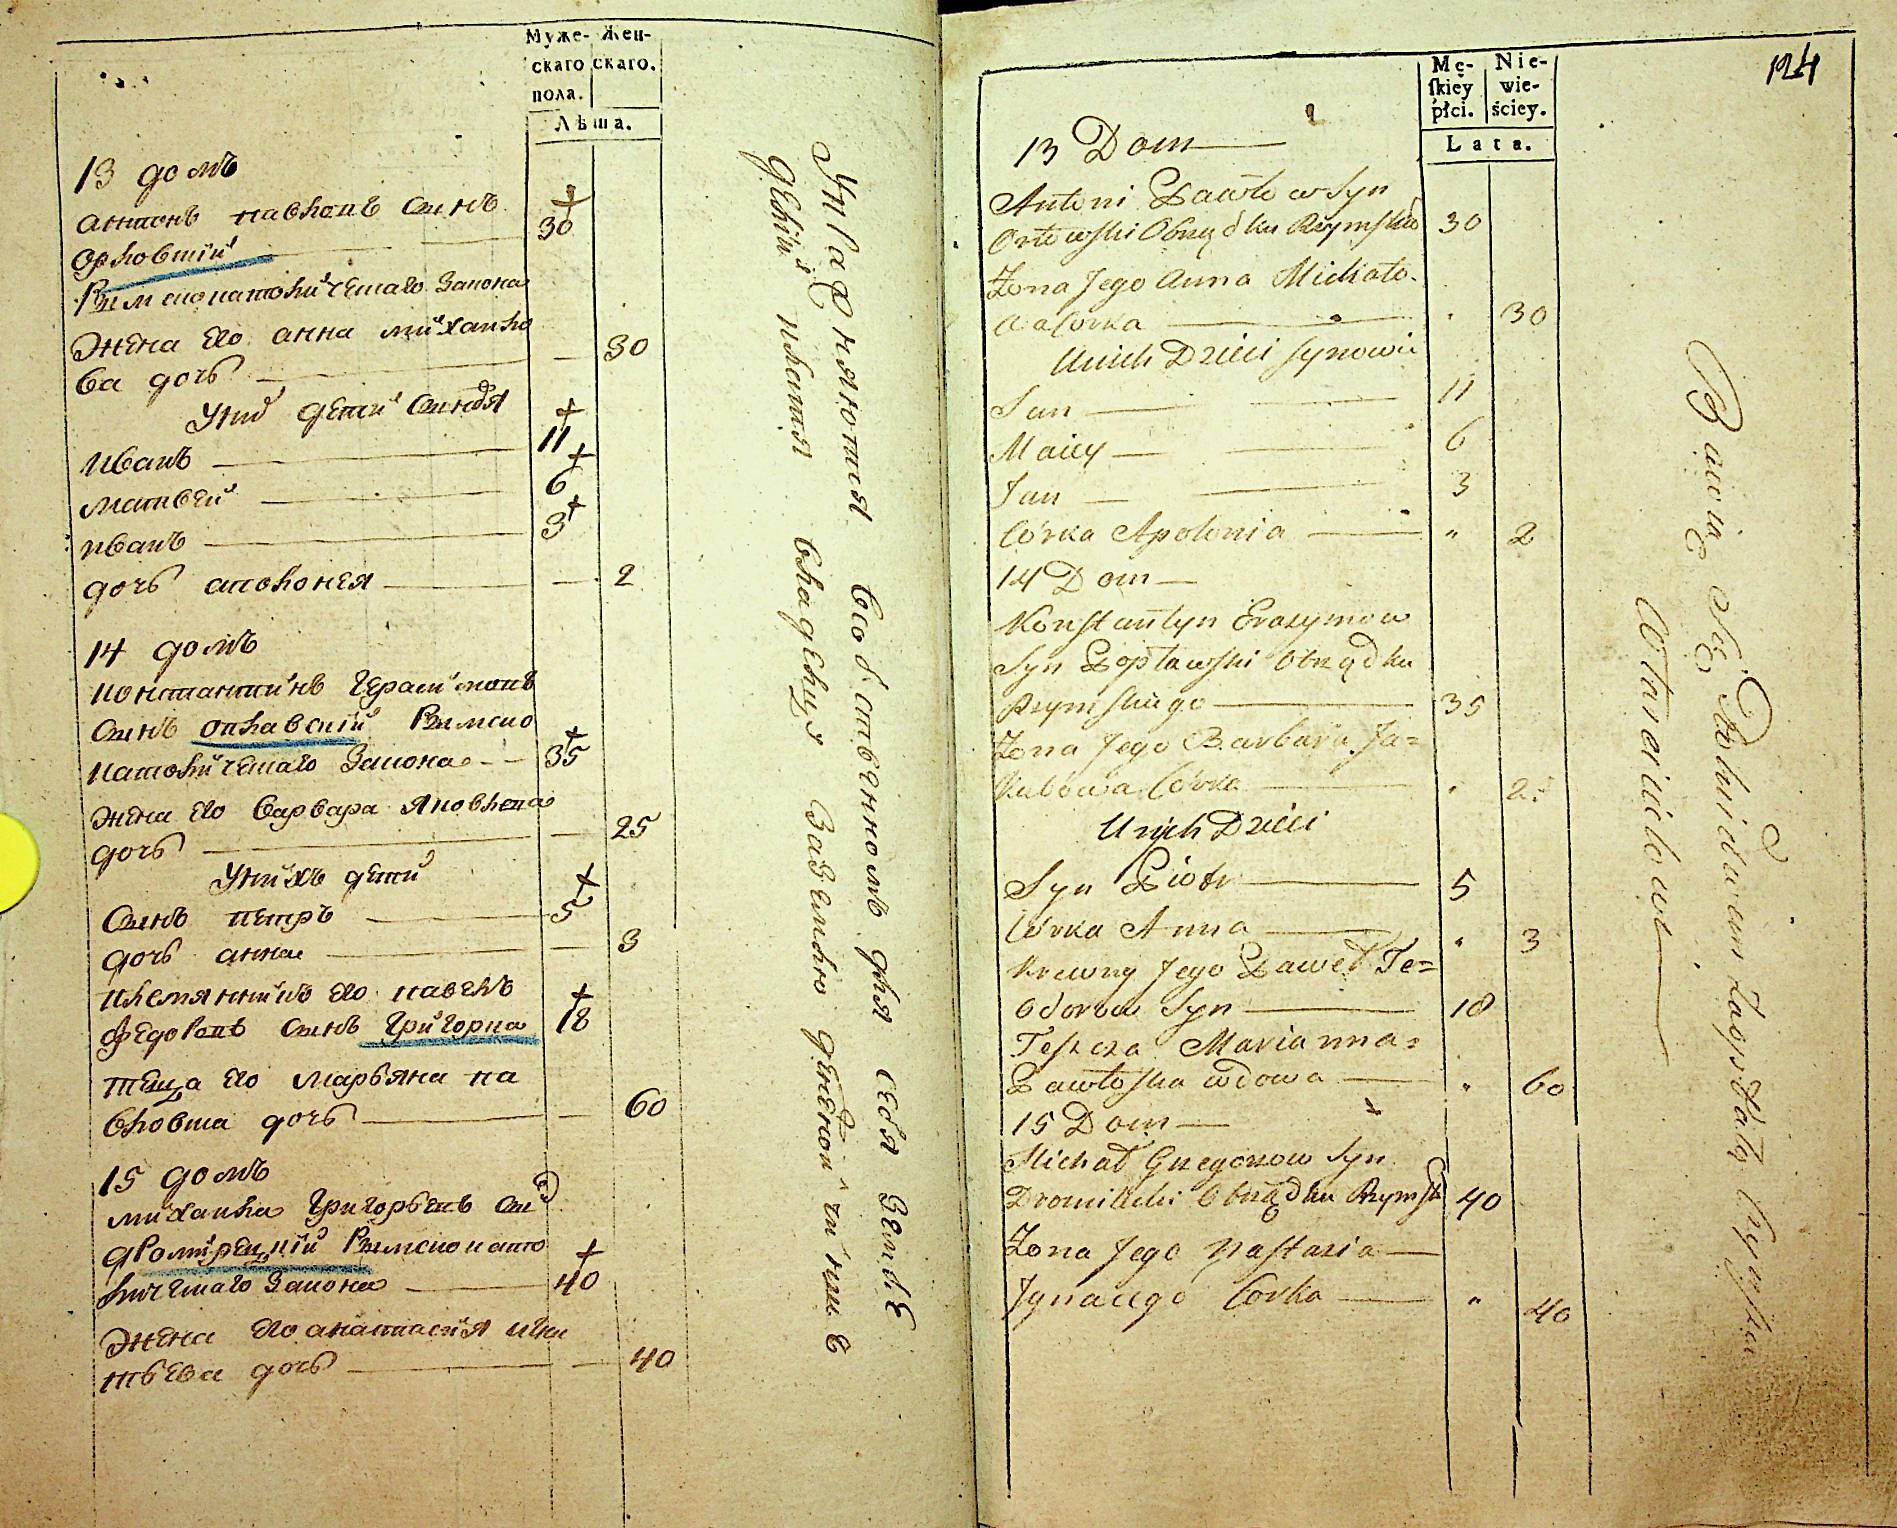 Муже-
скаго
пола.
Жен-
скаго.
Лѣта.
13 домъ
антонъ павловъ синъ 30
орловшій
Римскокатоличешаго Закона
Жена его анна михайло
ва дочь 30
Уних детей синовя
иванъ 11
матвей 6
иванъ 3
дочь аполонея 2
14 домъ
константинъ Герасимовъ
синъ оплавскій Римско
католичешаго Закона 35
Жена его варвара яковлева
дочь 25
Уних дети
Синъ петръ 5
дочь анна 3
племянникъ его павелъ
федоровъ синъ Григорка 18
теща его марьяна па
вловша дочь 60
15 домъ
михайла Григорьевъ син
Римскокато
личешаго Закона 40
Жена его анастасия игна
тьева дочь 40
Упражняются в собственномъ для себя
платя владельцу за землю
Mę-
skiey
płci.
Nie-
wie-
ściey.
Lata.
124
13 Dom
Antoni Pawłow Syn
Orłowski Obrządku Rzymskie 30
Żona Jego Anna Michało-
wa Corka " 30
Unich Dzieci Synowie
Jan 11
Maciey 6
Jan 3
Córka Apolonia " 2
14 Dom
Konstantyn Erazymow
Syn Popławski Obrządku
Rzymskiego 35
Żona Jego Barbara Ja=
kubowa Córka " 25
Unich Dzieci
Syn Piotr 5
Córka Anna " 3
Krewny Jego Paweł Te=
odorow Syn 18
Teszcza Marianna
Pawłoska wdowa " 60
15 Dom
Michał Grzegorzow Syn
Obrządku Rzymsk 40
Żona Jego Nastazia
Jgnacego Corka " 40
Bawią się Rolnictwem Czynszu